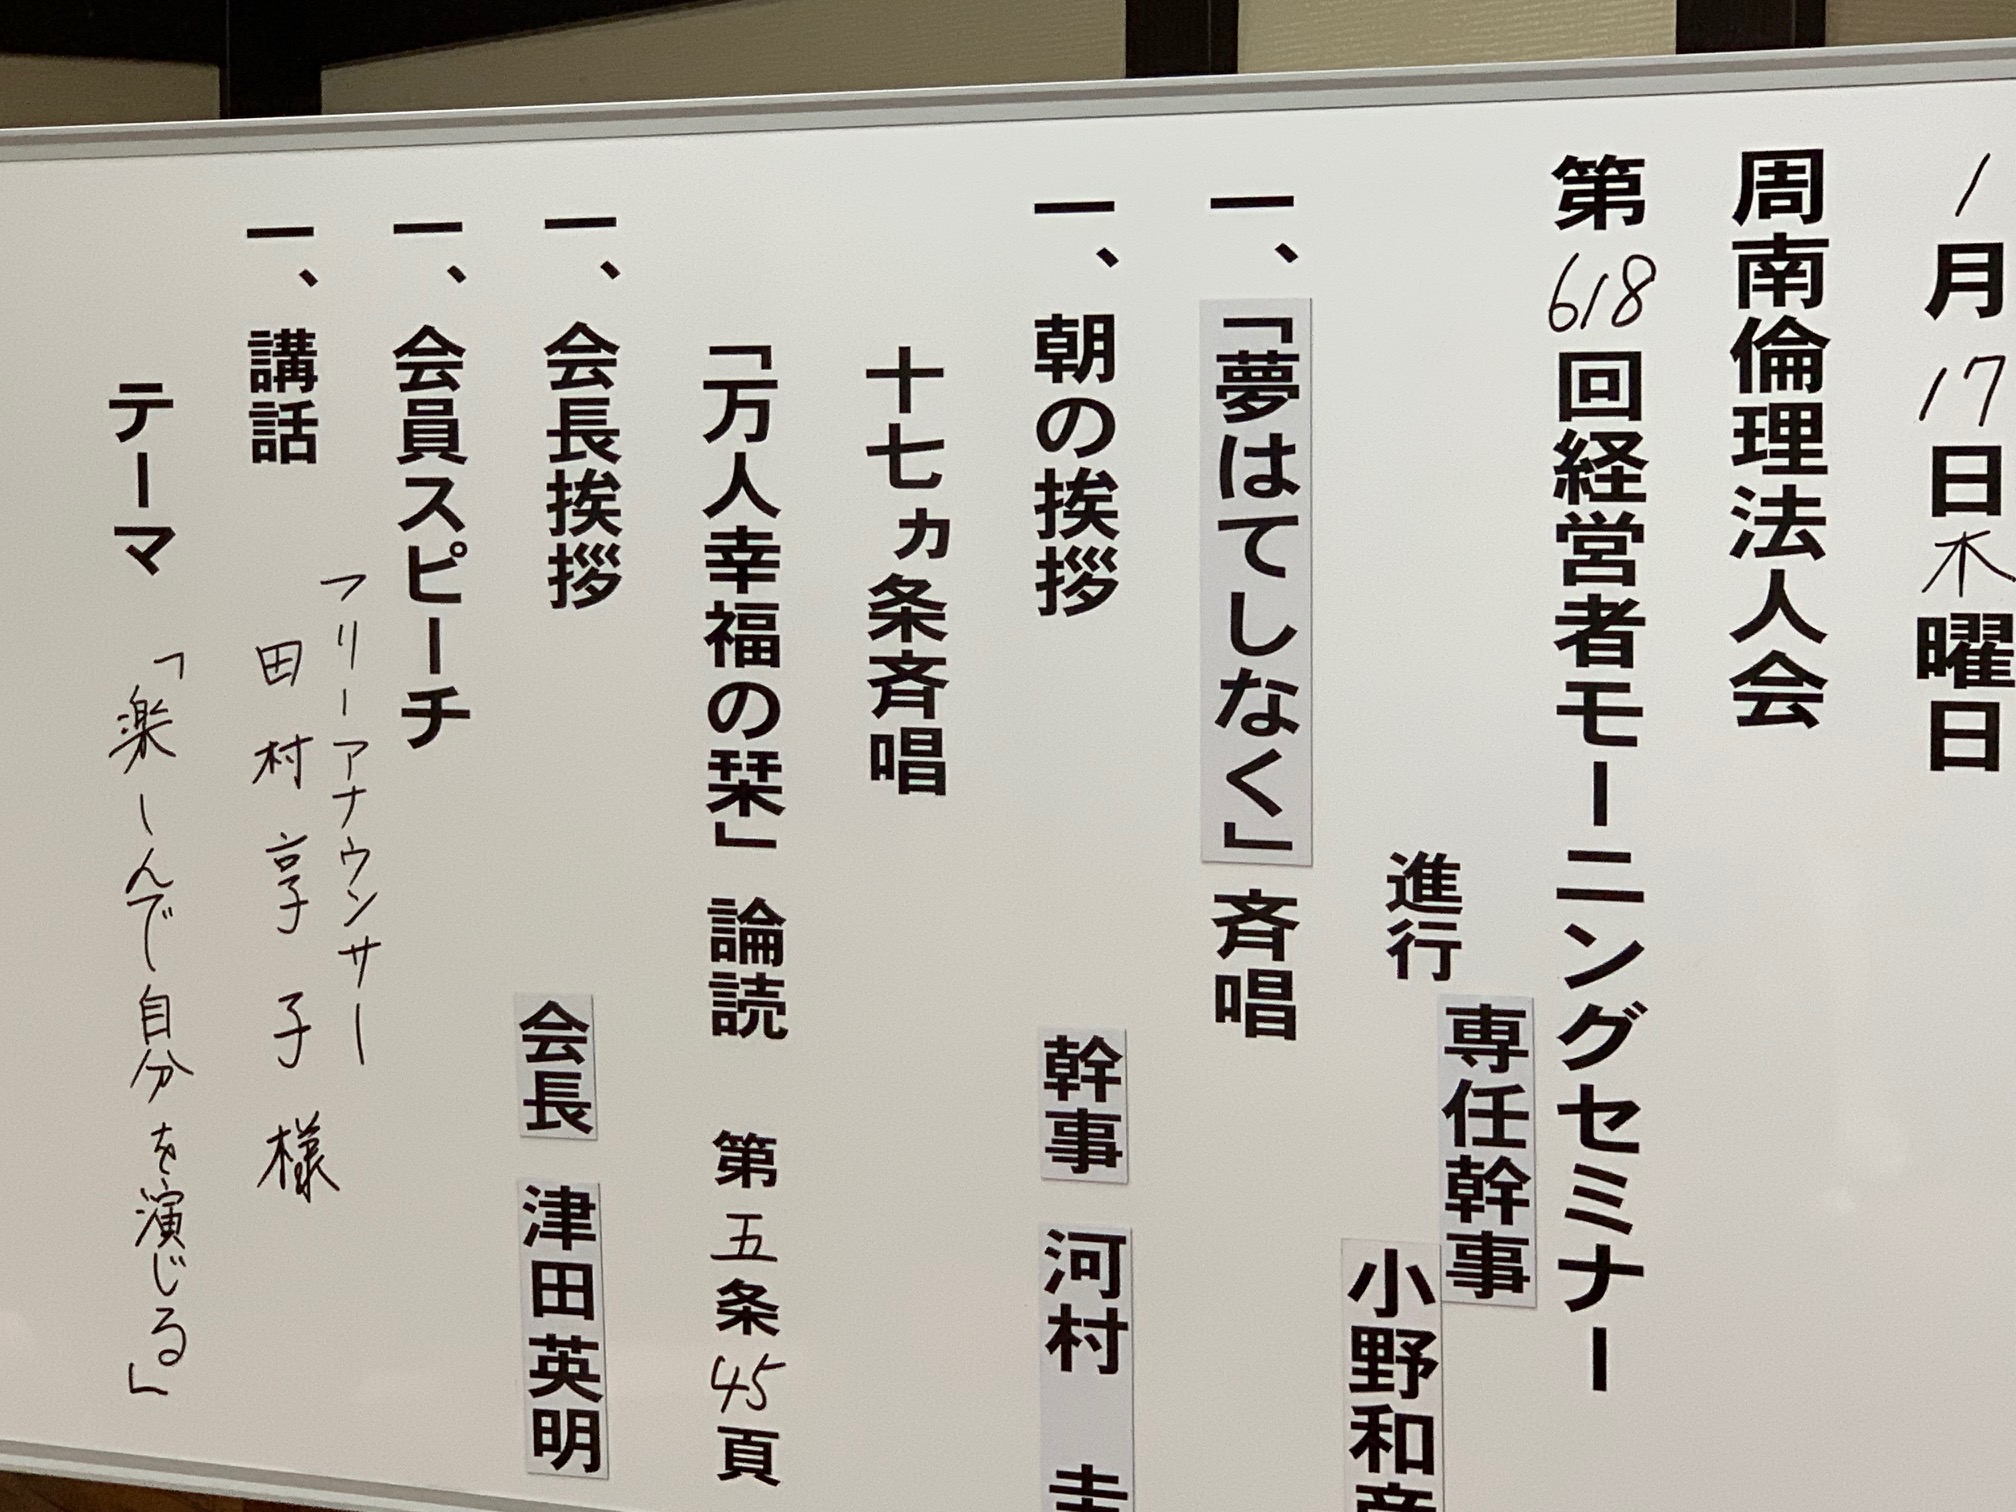 1月17日木曜日
周南倫理法人会
第618回経営者モーニングセミナー
進行 専任幹事 小野和
一、「夢はてしなく」斉唱
一、朝の挨拶 幹事 河村
十七ヵ条斉唱
「万人幸福の栞」論読 第五条45頁
一、会長挨拶 会長 津田英明
一、会員スピーチ
一、講話 フリーアナウンサー
田村享子様
テーマ 「楽しんで自分を演じる」